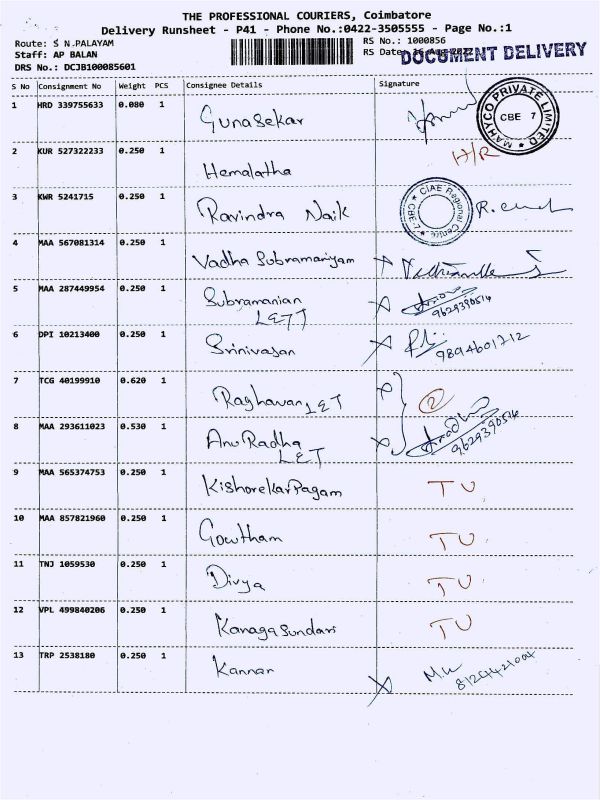 THE PROFESSIONAL COURIERS, Coimbatore
Delivery Runsheet - P41 - Phone No.:0422-3505555 - Page No.:1
Route: S N.PALAYAM
Staff: AP BALAN
DRS No.: DCJB100085601
RS No.: 1000856
RS Date:
DOCUMENT DELIVERY
S No Consignment No Weight PCS Consignee Details Signature
1 HRD 339755633 0.080 1 Gunasekar
MAHYCO PRIVATE LIMITED
CBE 7
2 KUR 527322233 0.250 1 Hemalatha H/R
3 KWR 5241715 0.250 1 Ravindra Naik
CIAE Regional Centre
CBE-7
4 MAA 567081314 0.250 1 Vadha Subramaniyam
5 MAA 287449954 0.250 1 Subramanian
LET 9629390514
6 DPI 10213400 0.250 1 Srinivasan 9894601712
7 TCG 40199910 0.620 1 Raghavan LET 2
8 MAA 293611023 0.530 1 AnuRadha
LET 9629390514
9 MAA 565374753 0.250 1 KishoreKarPagam TU
10 MAA 857821960 0.250 1 Gowtham TU
11 TNJ 1059530 0.250 1 Divya TU
12 VPL 499840206 0.250 1 Kanaga Sundari TU
13 TRP 2538180 0.250 1 Kannan